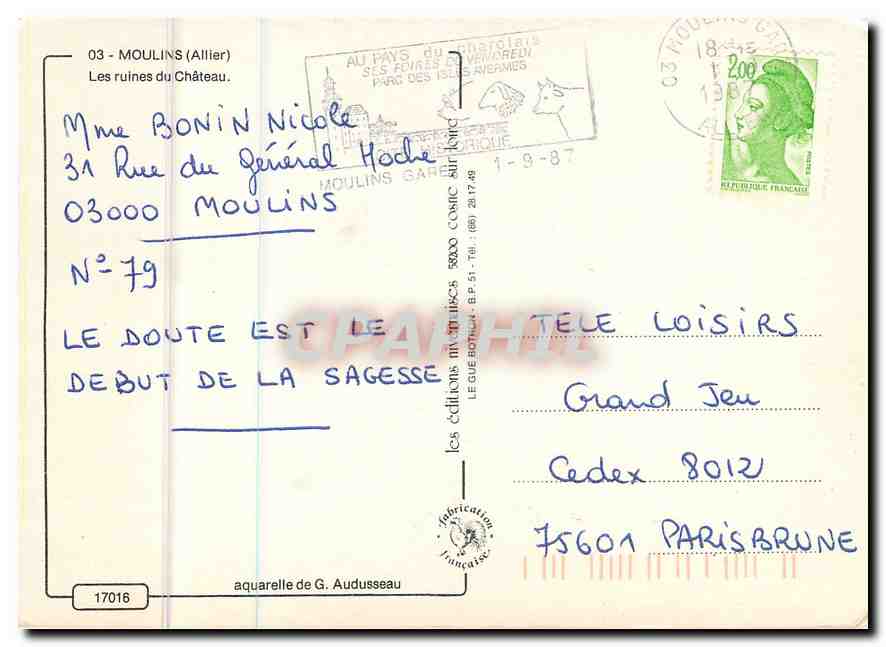 03 - MOULINS (Allier)
Les ruines du Château.
Mme BONIN Nicole
31 Rue du Général Hoche
03000 MOULINS
N° 79
LE DOUTE EST LE
DEBUT DE LA SAGESSE
aquarelle de G. Audusseau
17016
AU PAYS du charolais
SES FOIRES DU VENDREDI
PARC DES ISLES AVERMES
HISTORIQUE
MOULINS GARE 1-9-87
les éditions nivernaises 58200 cosne sur loire
LE GUE BOTRON - B.P. 51 - Tél. : (86) 28.17.49
fabrication
française
03 MOULINS GARE
18
2,00
POSTES
REPUBLIQUE FRANÇAISE
TELE LOISIRS
Grand Jeu
Cedex 8012
75601 PARISBRUNE
CPAPHIL